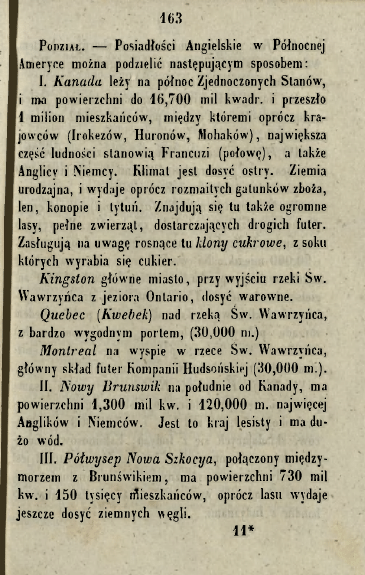 163
Podział. — Posiadłości Angielskie w Północnej
Ameryce można podzielić następującym sposobem:
I. Kanada leży na północ Zjednoczonych Stanów,
i ma powierzchni do 16,700 mil kwadr. i przeszło
1 milion mieszkańców, między któremi oprócz kra-
jowców (Irokezów, Huronów, Mohaków), największa
część ludności stanowią Francuzi (połowę), a także
Anglicy i Niemcy. Klimat jest dosyć ostry. Ziemia
urodzajna, i wydaje oprócz rozmaitych gatunków zboża,
len, konopie i tytuń. Znajdują się tu także ogromne
lasy, pełne zwierząt, dostarczających drogich futer.
Zasługują na uwagę rosnące tu klony cukrowe, z soku
których wyrabia się cukier.
Kingston główne miasto, przy wyjściu rzeki Św.
Wawrzyńca z jeziora Ontario, dosyć warowne.
Quebec (Kwebek) nad rzeką Św. Wawrzyńca,
z bardzo wygodnym portem, (30,000 m.)
Montreal na wyspie w rzece Św. Wawrzyńca,
główny skład futer Kompanii Hudsońskiej (30,000 m.).
II. Nowy Brunswik na południe od Kanady, ma
powierzchni 1,300 mil kw. i 120,000 m. najwięcej
Anglików i Niemców. Jest to kraj lesisty i ma du-
żo wód.
III. Półwysep Nowa Szkocya, połączony między-
morzem z Brunświkiem, ma powierzchni 730 mil
kw. i 150 tysięcy mieszkańców, oprócz lasu wydaje
jeszcze dosyć ziemnych węgli.
11*